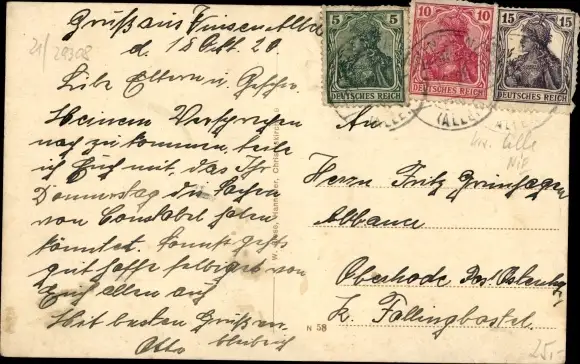 Gruß aus Winsen Aller
d. 18 Okt. 20.
Liebe Eltern u. Geschw.
Meinem Versprechen
nach zu kommen, teile
ich Euch mit, das Ihr
Donnerstag die Sachen
von Constabel holen
könntet. Sonst gehts
gut hoffe selbiges von
Euch allen auf
Mit besten Grüßen
verbleibt
Otto
21/29308
5 5
DEUTSCHES REICH
10 10
DEUTSCHES REICH
15 15
DEUTSCHES REICH
(ALLER)
(ALLER)
An
Herrn Fritz
Oberhode Post
k. Fallingbostel.
W. Hannover, Christ
N 58
25.-